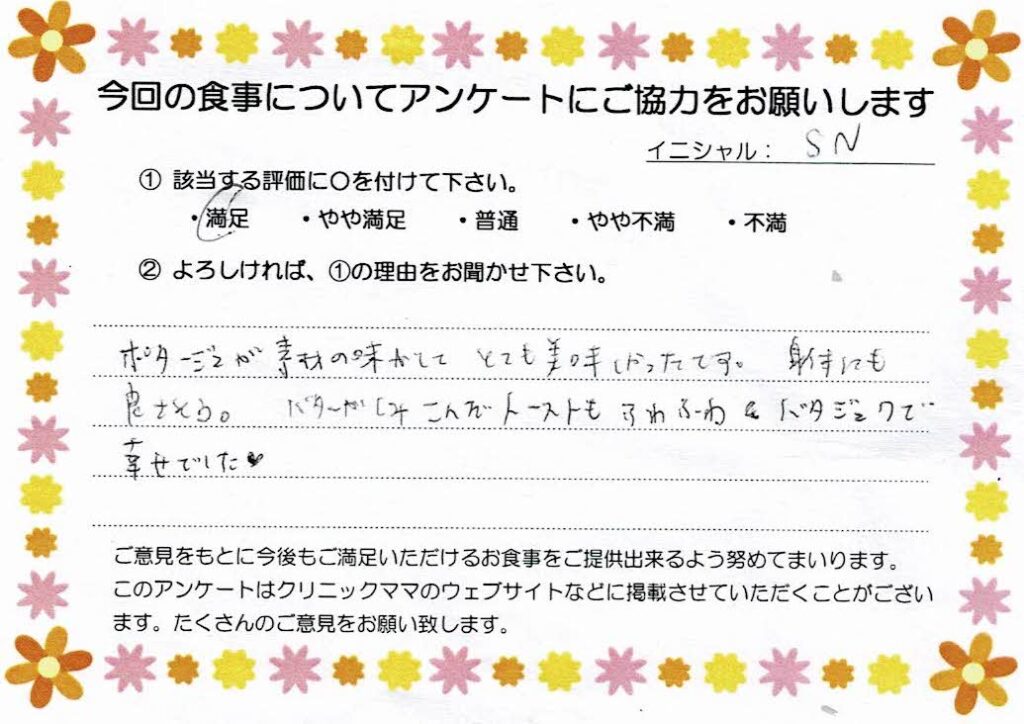 今回の食事についてアンケートにご協力をお願いします
イニシャル： SN
① 該当する評価に〇を付けて下さい。
・満足 ・やや満足 ・普通 ・やや不満 ・不満
② よろしければ、①の理由をお聞かせ下さい。
ポタージュが素材の味がして とても美味しかったです。 身体にも
良さそう。 バターがしみこんだトーストもふわふわ& バタジュワで
幸せでした♥
ご意見をもとに今後もご満足いただけるお食事をご提供出来るよう努めてまいります。
このアンケートはクリニックママのウェブサイトなどに掲載させていただくことがござい
ます。たくさんのご意見をお願い致します。